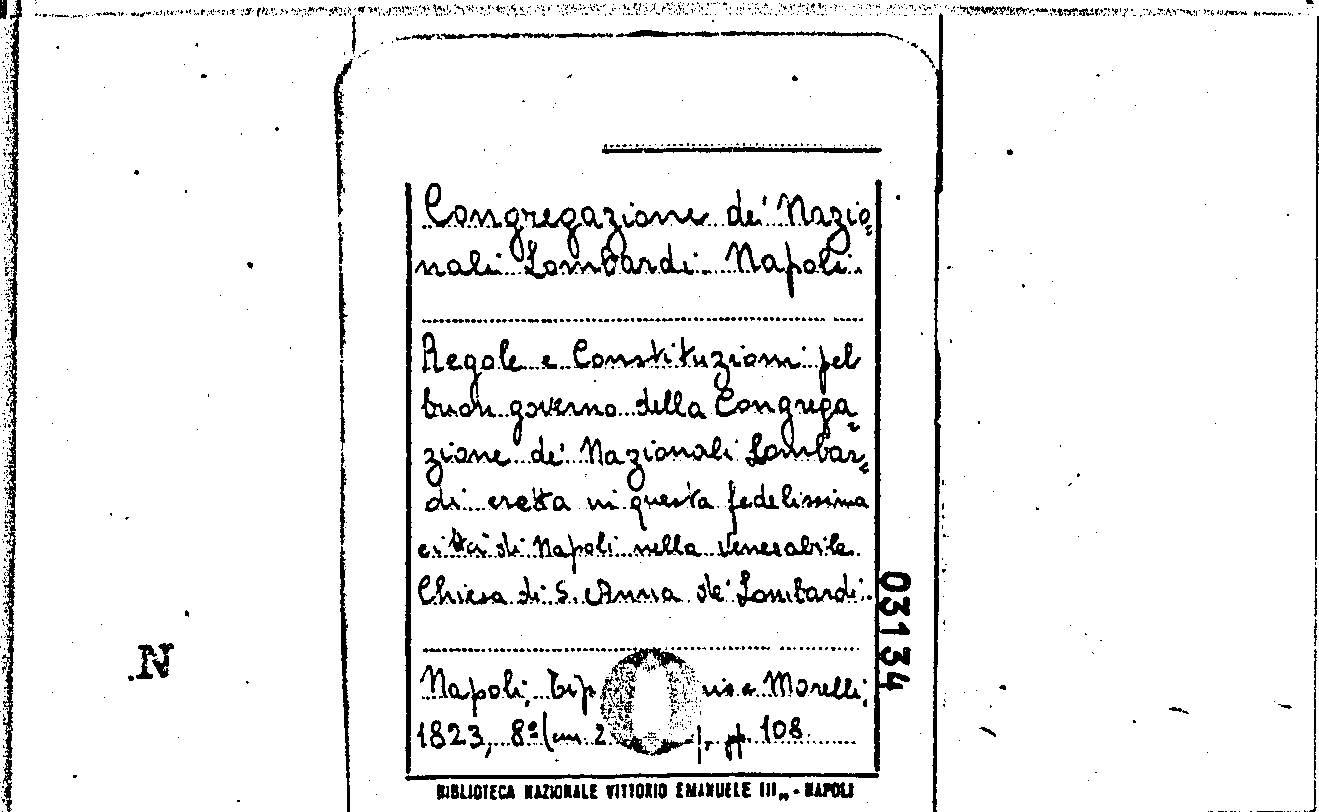 Congregazione de' Nazio=
nali Lombardi. Napoli.
Regole e Constituzioni pel
buon governo della Congrega=
zione de' Nazionali Lombar=
di eretta in questa fedelissima
città di Napoli nella venerabile
Chiesa di S. Anna de' Lombardi.
Napoli, Tip Morelli,
1823, 8º (cm. 2 ), pp. 108
BIBLIOTECA NAZIONALE VITTORIO EMANUELE III„ - NAPOLI
03134
N